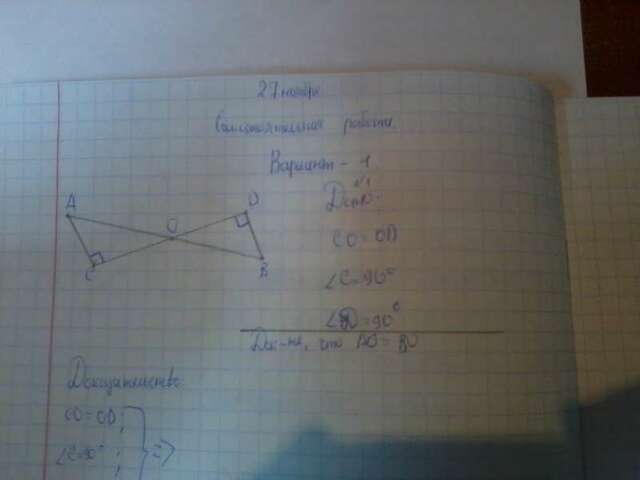 27 ноября
Самостоятельная работа.
Вариант - 1.
Дано:
A
O
D
C
B
CO = OD
∠C = 90°
∠D = 90°
Док-ть, что AO = BO
Доказательство
CO = OD;
∠C = 90°;
;
=>